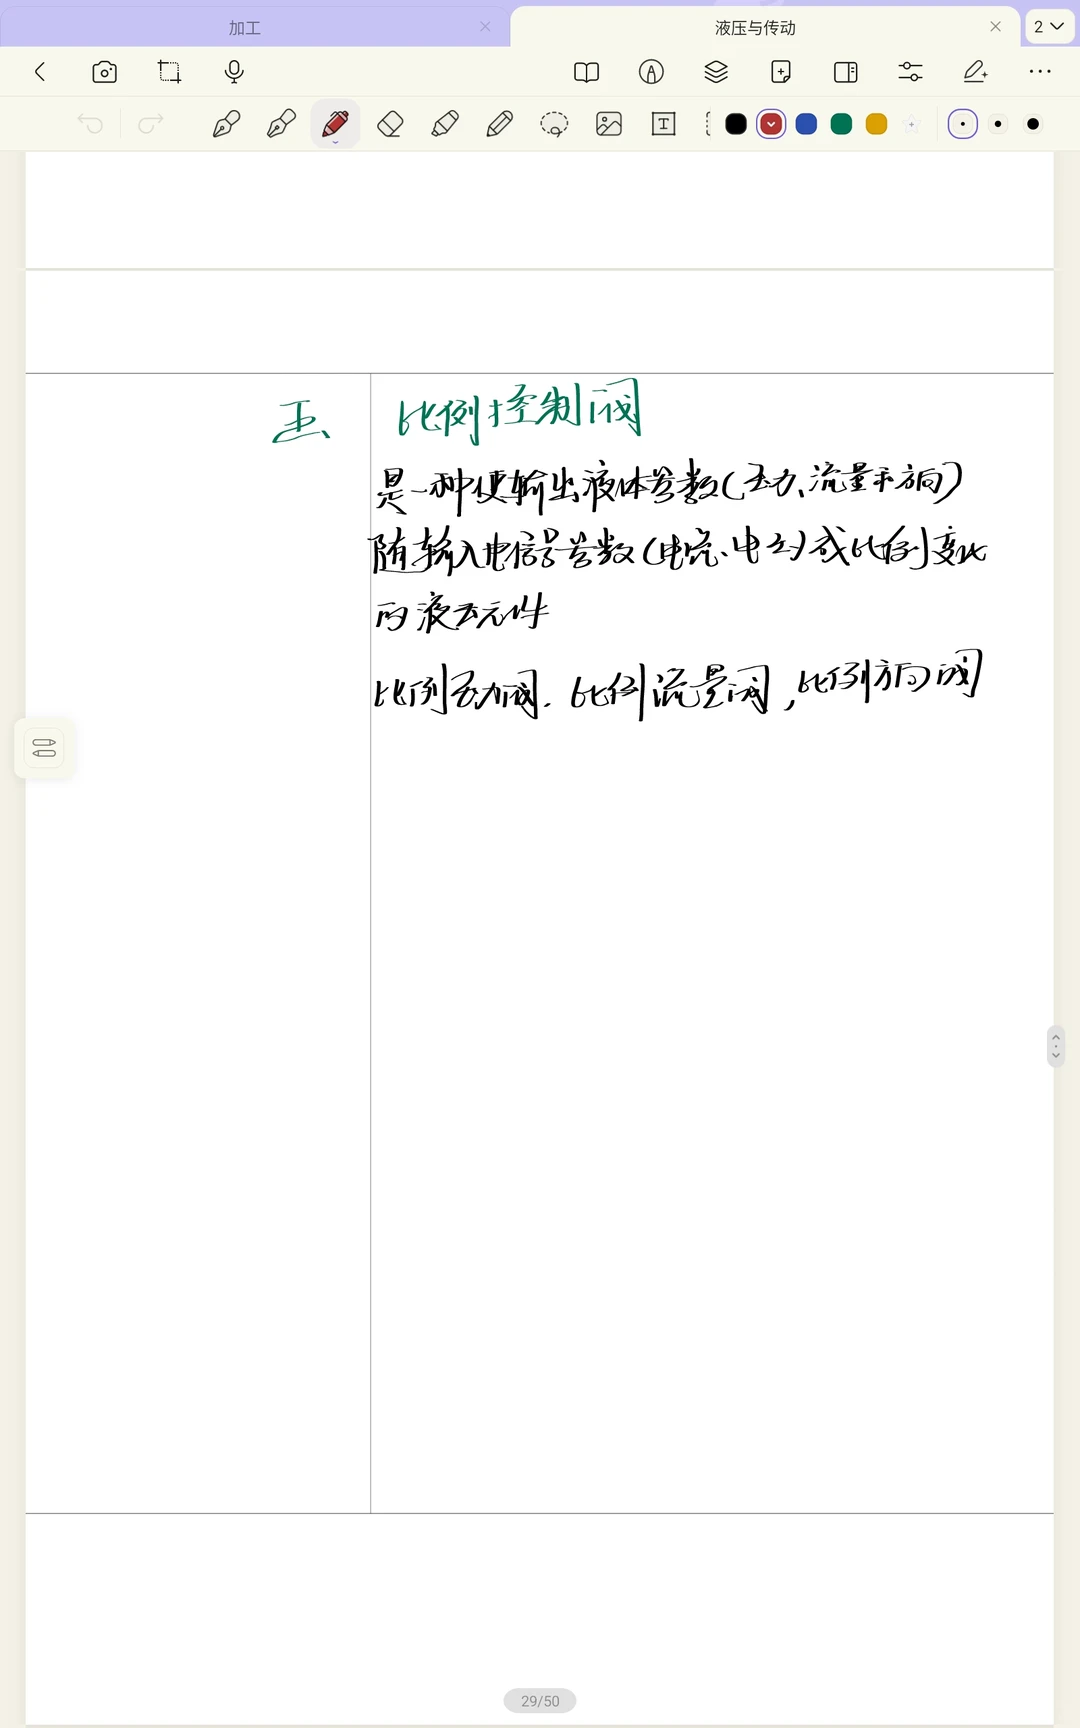 加工
液压与传动
2
五、 比例控制阀
是一种使输出液体参数(压力、流量和方向)
随输入电信号参数(电流、电压)成比例变化
的液压元件
比例压力阀. 比例流量阀,比例方向阀
29/50